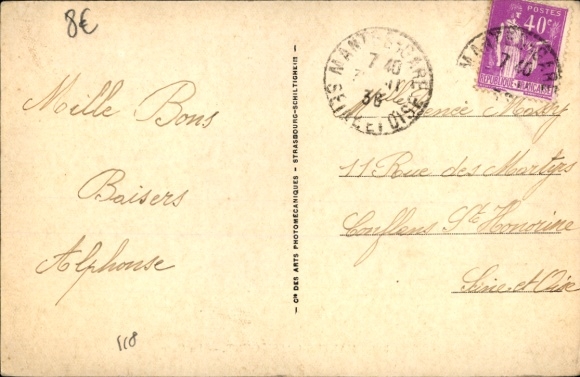 8€
Mille Bons
Baisers
Alphonse
118
Cie DES ARTS PHOTOMÉCANIQUES - STRASBOURG-SCHILTIGHEIM
MANTES-GARE
7 40
11
38
SEINE ET OISE
POSTES
40c
REPUBLIQUE FRANCAISE
MANTES-GARE
7 40
Massy
11 Rue des Martyrs
Conflans Ste Honorine
Seine et Oise